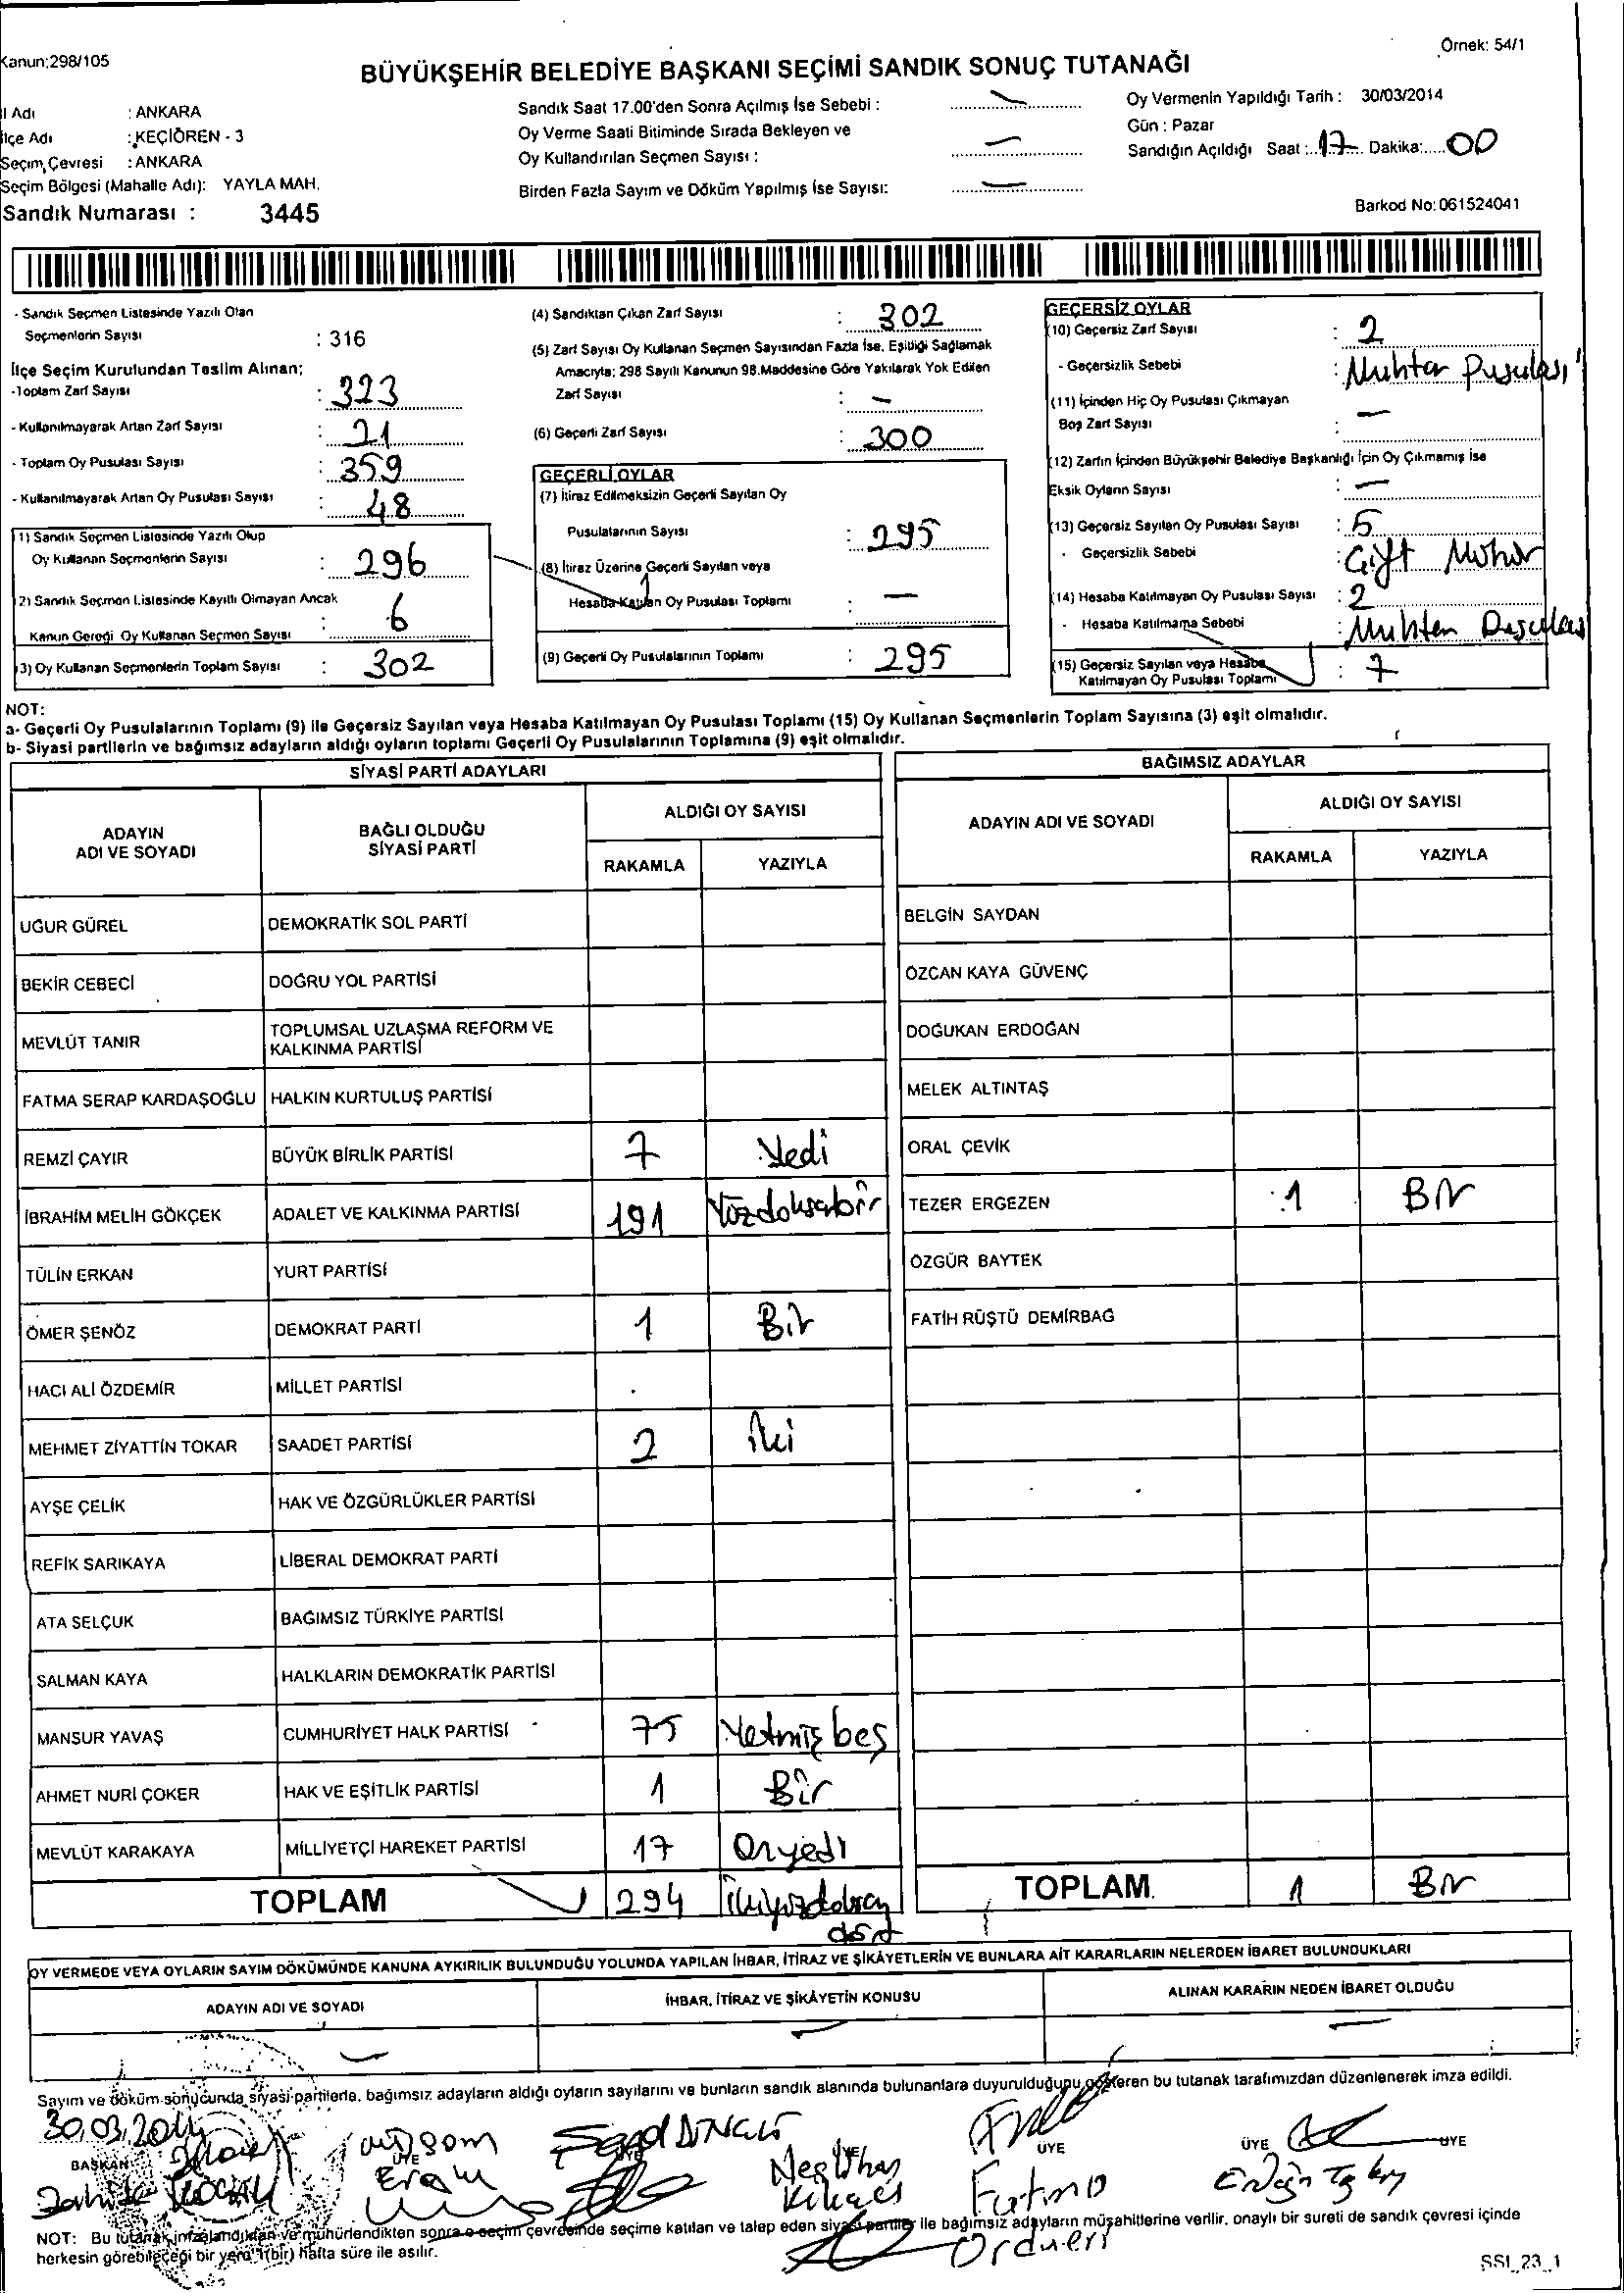 Kanun;298/105
Örnek: 54/1
BÜYÜKŞEHİR BELEDİYE BAŞKANI SEÇİMİ SANDIK SONUÇ TUTANAĞI
İl Adı : ANKARA
İlçe Adı : KEÇİÖREN - 3
Seçim Çevresi : ANKARA
Seçim Bölgesi (Mahalle Adı): YAYLA MAH.
Sandık Numarası : 3445
Sandık Saat 17.00'den Sonra Açılmış İse Sebebi : —
Oy Verme Saati Bitiminde Sırada Bekleyen ve
Oy Kullandırılan Seçmen Sayısı : —
Birden Fazla Sayım ve Döküm Yapılmış İse Sayısı: —
Oy Vermenin Yapıldığı Tarih : 30/03/2014
Gün : Pazar
Sandığın Açıldığı Saat : 17 Dakika: 00
Barkod No: 061524041
- Sandık Seçmen Listesinde Yazılı Olan
Seçmenlerin Sayısı : 316
İlçe Seçim Kurulundan Teslim Alınan;
-Toplam Zarf Sayısı : 323
- Kullanılmayarak Artan Zarf Sayısı : 21
- Toplam Oy Pusulası Sayısı : 359
- Kullanılmayarak Artan Oy Pusulası Sayısı : 48
1) Sandık Seçmen Listesinde Yazılı Olup
Oy Kullanan Seçmenlerin Sayısı : 296
2) Sandık Seçmen Listesinde Kayıtlı Olmayan Ancak
Kanun Gereği Oy Kullanan Seçmen Sayısı : 6
3) Oy Kullanan Seçmenlerin Toplam Sayısı : 302
(4) Sandıktan Çıkan Zarf Sayısı : 302
(5) Zarf Sayısı Oy Kullanan Seçmen Sayısından Fazla İse, Eşitliği Sağlamak
Amacıyla; 298 Sayılı Kanunun 98.Maddesine Göre Yakılarak Yok Edilen
Zarf Sayısı : —
(6) Geçerli Zarf Sayısı : 300
GEÇERLİ OYLAR
(7) İtiraz Edilmeksizin Geçerli Sayılan Oy
Pusulalarının Sayısı : 295
(8) İtiraz Üzerine Geçerli Sayılan veya
Hesaba Katılan Oy Pusulası Toplamı : —
(9) Geçerli Oy Pusulalarının Toplamı : 295
GEÇERSİZ OYLAR
(10) Geçersiz Zarf Sayısı : 2
- Geçersizlik Sebebi : Muhtar Pusulası
(11) İçinden Hiç Oy Pusulası Çıkmayan
Boş Zarf Sayısı : —
(12) Zarfın İçinden Büyükşehir Belediye Başkanlığı İçin Oy Çıkmamış İse
Eksik Oyların Sayısı : —
(13) Geçersiz Sayılan Oy Pusulası Sayısı : 5
- Geçersizlik Sebebi : Çift Mühür
(14) Hesaba Katılmayan Oy Pusulası Sayısı : 2
- Hesaba Katılmama Sebebi :
(15) Geçersiz Sayılan veya Hesaba
Katılmayan Oy Pusulası Toplamı : 7
NOT:
a- Geçerli Oy Pusulalarının Toplamı (9) ile Geçersiz Sayılan veya Hesaba Katılmayan Oy Pusulası Toplamı (15) Oy Kullanan Seçmenlerin Toplam Sayısına (3) eşit olmalıdır.
b- Siyasi partilerin ve bağımsız adayların aldığı oyların toplamı Geçerli Oy Pusulalarının Toplamına (9) eşit olmalıdır.
SİYASİ PARTİ ADAYLARI
ADAYIN ADI VE SOYADI
BAĞLI OLDUĞU SİYASİ PARTİ
ALDIĞI OY SAYISI
RAKAMLA YAZIYLA
UĞUR GÜREL DEMOKRATİK SOL PARTİ
BEKİR CEBECİ DOĞRU YOL PARTİSİ
MEVLÜT TANIR TOPLUMSAL UZLAŞMA REFORM VE KALKINMA PARTİSİ
FATMA SERAP KARDAŞOĞLU HALKIN KURTULUŞ PARTİSİ
REMZİ ÇAYIR BÜYÜK BİRLİK PARTİSİ 7 Yedi
İBRAHİM MELİH GÖKÇEK ADALET VE KALKINMA PARTİSİ 191 Yüzdoksabir
TÜLİN ERKAN YURT PARTİSİ
ÖMER ŞENÖZ DEMOKRAT PARTİ 1 Bir
HACI ALİ ÖZDEMİR MİLLET PARTİSİ
MEHMET ZİYATTİN TOKAR SAADET PARTİSİ 2 iki
AYŞE ÇELİK HAK VE ÖZGÜRLÜKLER PARTİSİ
REFİK SARIKAYA LİBERAL DEMOKRAT PARTİ
ATA SELÇUK BAĞIMSIZ TÜRKİYE PARTİSİ
SALMAN KAYA HALKLARIN DEMOKRATİK PARTİSİ
MANSUR YAVAŞ CUMHURİYET HALK PARTİSİ 75 Yetmiş beş
AHMET NURİ ÇOKER HAK VE EŞİTLİK PARTİSİ 1 Bir
MEVLÜT KARAKAYA MİLLİYETÇİ HAREKET PARTİSİ 17 Onyedi
TOPLAM 294 İkiyüzdoksan dört
BAĞIMSIZ ADAYLAR
ADAYIN ADI VE SOYADI
ALDIĞI OY SAYISI
RAKAMLA YAZIYLA
BELGİN SAYDAN
ÖZCAN KAYA GÜVENÇ
DOĞUKAN ERDOĞAN
MELEK ALTINTAŞ
ORAL ÇEVİK
TEZER ERGEZEN 1 Bir
ÖZGÜR BAYTEK
FATİH RÜŞTÜ DEMİRBAĞ
TOPLAM 1 Bir
OY VERMEDE VEYA OYLARIN SAYIM DÖKÜMÜNDE KANUNA AYKIRILIK BULUNDUĞU YOLUNDA YAPILAN İHBAR, İTİRAZ VE ŞİKÂYETLERİN VE BUNLARA AİT KARARLARIN NELERDEN İBARET BULUNDUKLARI
ADAYIN ADI VE SOYADI
İHBAR, İTİRAZ VE ŞİKÂYETİN KONUSU
ALINAN KARARIN NEDEN İBARET OLDUĞU
— — —
Sayım ve döküm sonucunda siyasi partilerle, bağımsız adayların aldığı oyların sayılarını ve bunların sandık alanında bulunanlara duyurulduğunu gösteren bu tutanak tarafımızdan düzenlenerek imza edildi.
30.03.2014
BAŞKAN ÜYE ÜYE ÜYE ÜYE ÜYE ÜYE
Neslihan
Fatma
NOT: Bu tutanak imzalandıktan ve mühürlendikten sonra o seçim çevresinde seçime katılan ve talep eden siyasi partiler ile bağımsız adayların müşahitlerine verilir, onaylı bir sureti de sandık çevresi içinde
herkesin görebileceği bir yere 1(bir) hafta süre ile asılır.
SSI_23_1